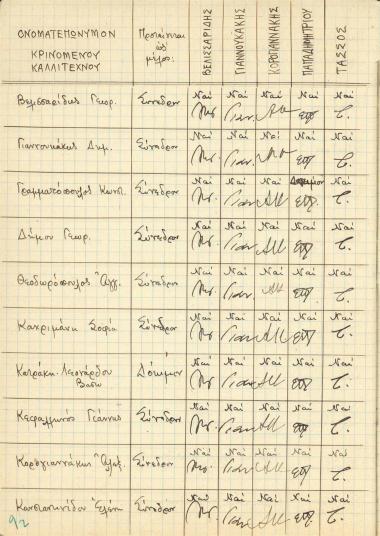 ΟΝΟΜΑΤΕΠΩΝΥΜΟΝ
ΚΡΙΝΟΜΕΝΟΥ
ΚΑΛΛΙΤΕΧΝΟΥ
Προτείνεται
ὡς
μέλος:
ΒΕΛΙΣΣΑΡΙΔΗΣ
ΓΙΑΝΝΟΥΚΑΚΗΣ
ΚΟΡΟΓΙΑΝΝΑΚΗΣ
ΠΑΠΑΔΗΜΗΤΡΙΟΥ
ΤΑΣΣΟΣ
Βελισσαρίδης Γεωρ. Σύνεδρον Ναί Ναί Ναί Ναί Ναί
Γιαννουκάκης Δημ. Σύνεδρον Ναί Ναί Ναί Ναί Ναί
Γραμματόπουλος Κωνσ. Σύνεδρον Ναί Ναί Ναί Δόκιμον Ναί
Δήμου Γεωρ. Σύνεδρον Ναί Ναί Ναί Ναί Ναί
Θεοδωρόπουλος Ἀγγ. Σύνεδρον Ναί Ναί Ναί Ναί Ναί
Καχριμάνη Σοφία Σύνεδρον Ναί Ναί Ναί Ναί Ναί
Κατράκη-Λεονάρδου
Βάσω Δόκιμον Ναί Ναί Ναί Ναί Ναί
Κεφαλληνός Γιάννης Σύνεδρον Ναί Ναί Ναί Ναί Ναί
Κορογιαννάκης Ἀλεξ. Σύνεδρον Ναί Ναί Ναί Ναί Ναί
Κωνσταντινίδου Ἑλένη Σύνεδρον Ναί Ναί Ναί Ναί Ναί
92